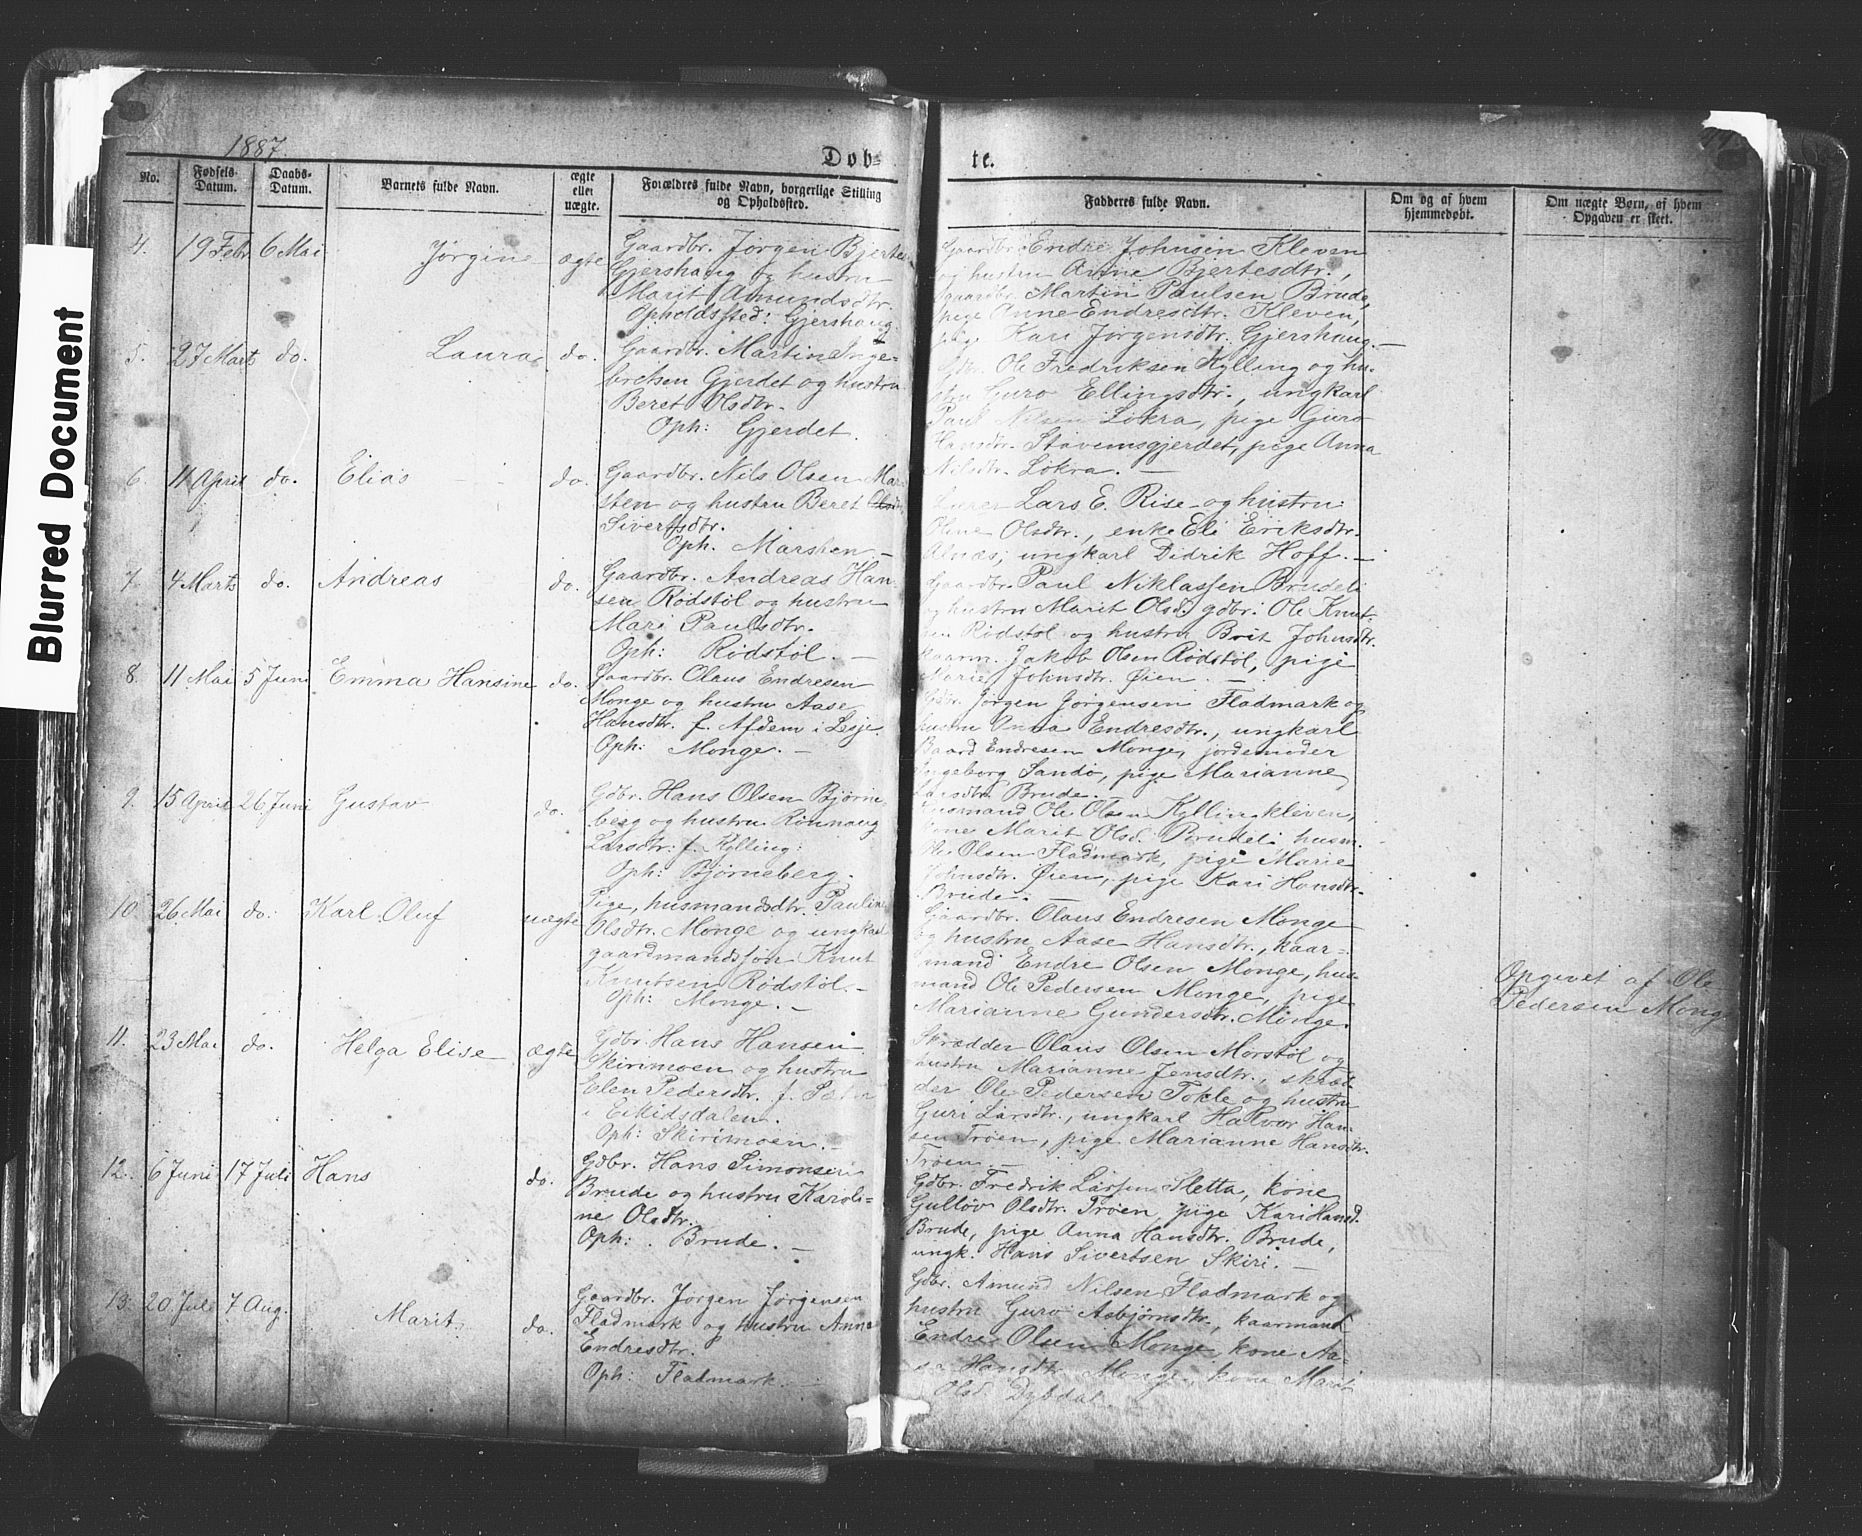 Blurred Document
1887.
Døb-
te.
No.
Fødsels-
Datum.
Daabs-
Datum.
Barnets fulde Navn.
ægte
eller
uægte.
Forældres fulde Navn, borgerlige Stilling
og Opholdssted.
Fadderes fulde Navn.
Om og af hvem
hjemmedøbt.
Om uægte Børn, af hvem
Opgaven er skeet.
4. 19 Febr 6 Mai Jørgine ægte
Gaardbr. Jørgen Bjertes
Gjershaug og hustru
Marit Amundsdtr.
Opholdssted: Gjershaug.
Gaardbr. Endre Johnsen Kleven
og hustru Anne Bjertesdtr.,
gaardbr. Martin Paulsen Brude,
pige Anne Endresdtr. Kleven,
pige Kari Jørgensdtr. Gjershaug. —
5. 27 Marts do. Laura do.
Gaardbr. Martin Inge-
bretsen Gjerdet og hustru
Beret Olsdtr.
Oph: Gjerdet.
Gdbr. Ole Fredriksen Kylling og hu-
stru Guro Ellingsdtr., ungkarl
Paul Nilsen Løkra, pige Guro
Hansdtr. Stavemsgjerdet, pige Anna
Nilsdtr. Løkra. —
6. 11 April do. Elias do.
Gaardbr. Nils Olsen Mar-
sten og hustru Beret Olsdtr.
Sivertsdtr.
Oph. Marsten —
Lærer Lars E. Rise og hustru
Oline Olsdtr., enke Eli Eriksdtr.
Alnæs, ungkarl Didrik Hoff. —
7. 4 Marts do. Andreas do.
Gaardbr. Andreas Han-
sen Rødstøl og hustru
Mari Paulsdtr.
Oph: Rødstøl. —
Gaardbr. Paul Niklassen Brudeli
og hustru Marit Olsd. gdbr. Ole Knut-
sen Rødstøl og hustru Brit Johnsdtr.
kaarm. Jakob Olsen Rødstøl, pige
Marie Johnsdtr. Øien. —
8. 11 Mai 5 Juni Emma Hansine do.
Gaardbr. Olaus Endresen
Monge og hustru Aase
Hansdtr. f. Afdem i Lesje.
Oph: Monge. —
Gdbr. Jørgen Jørgensen Fladmark og
hustru Anna Endresdtr., ungkarl
Baard Endresen Monge, jordemoder
Ingeborg Sandø, pige Marianne
Larsdtr. Brude. —
9. 15 April 26 Juni Gustav do.
Gdbr. Hans Olsen Bjørne-
berg og hustru Rønnaug
Larsdtr. f. Kylling.
Oph: Bjørneberg.
Husmand Ole Olsen Kyllingkleven,
kone Marit Olsd. Brudeli, husm.
Ole Olsen Fladmark, pige Marie
Johnsdtr. Øien, pige Kari Hansdtr.
Brude. —
10. 26 Mai do. Karl Oluf uægte
Pige, husmandsdtr. Pauline
Olsdtr. Monge og ungkarl
gaardmandssøn Knut
Knutsen Rødstøl. —
Oph: Monge. —
Gaardbr. Olaus Endresen Monge
og hustru Aase Hansdtr., kaar-
mand Endre Olsen Monge, hus-
mand Ole Pedersen Monge, pige
Marianne Gundersdtr. Monge.
Opgivet af Ole
Pedersen Monge
11. 23 Mai do. Helga Elise ægte
Gdbr. Hans Hansen
Skirimoen og hustru
Elen Pedersdtr. f. Sæter
i Eikisdalen.
Oph: Skirimoen. —
Skrædder Olaus Olsen Morstøl og
hustru Marianne Jensdtr., skræd-
der Ole Pedersen Tokle og hustru
Guri Larsdtr., ungkarl Halvor Han-
sen Trøen, pige Marianne Hansdtr.
Trøen. —
12. 6 Juni 17 Juli Hans do.
Gdbr. Hans Simonsen
Brude og hustru Karoli-
ne Olsdtr.
Oph: Brude. —
Gdbr. Fredrik Larsen Sletta, kone
Gulløv Olsdtr. Trøen, pige Kari Hansd.
Brude, pige Anna Hansdtr. Brude,
ungk. Hans Sivertsen Skiri. —
13. 20 Juli 7 Aug. Marit do.
Gaardbr. Jørgen Jørgensen
Fladmark og hustru Anne
Endresdtr.
Oph: Fladmark. —
Gdbr. Amund Nilsen Fladmark og
hustru Guro Asbjørnsdtr., kaarmand
Endre Olsen Monge, kone Aa-
sa Hansdtr. Monge, kone Marit
Olsd. Dybdal.